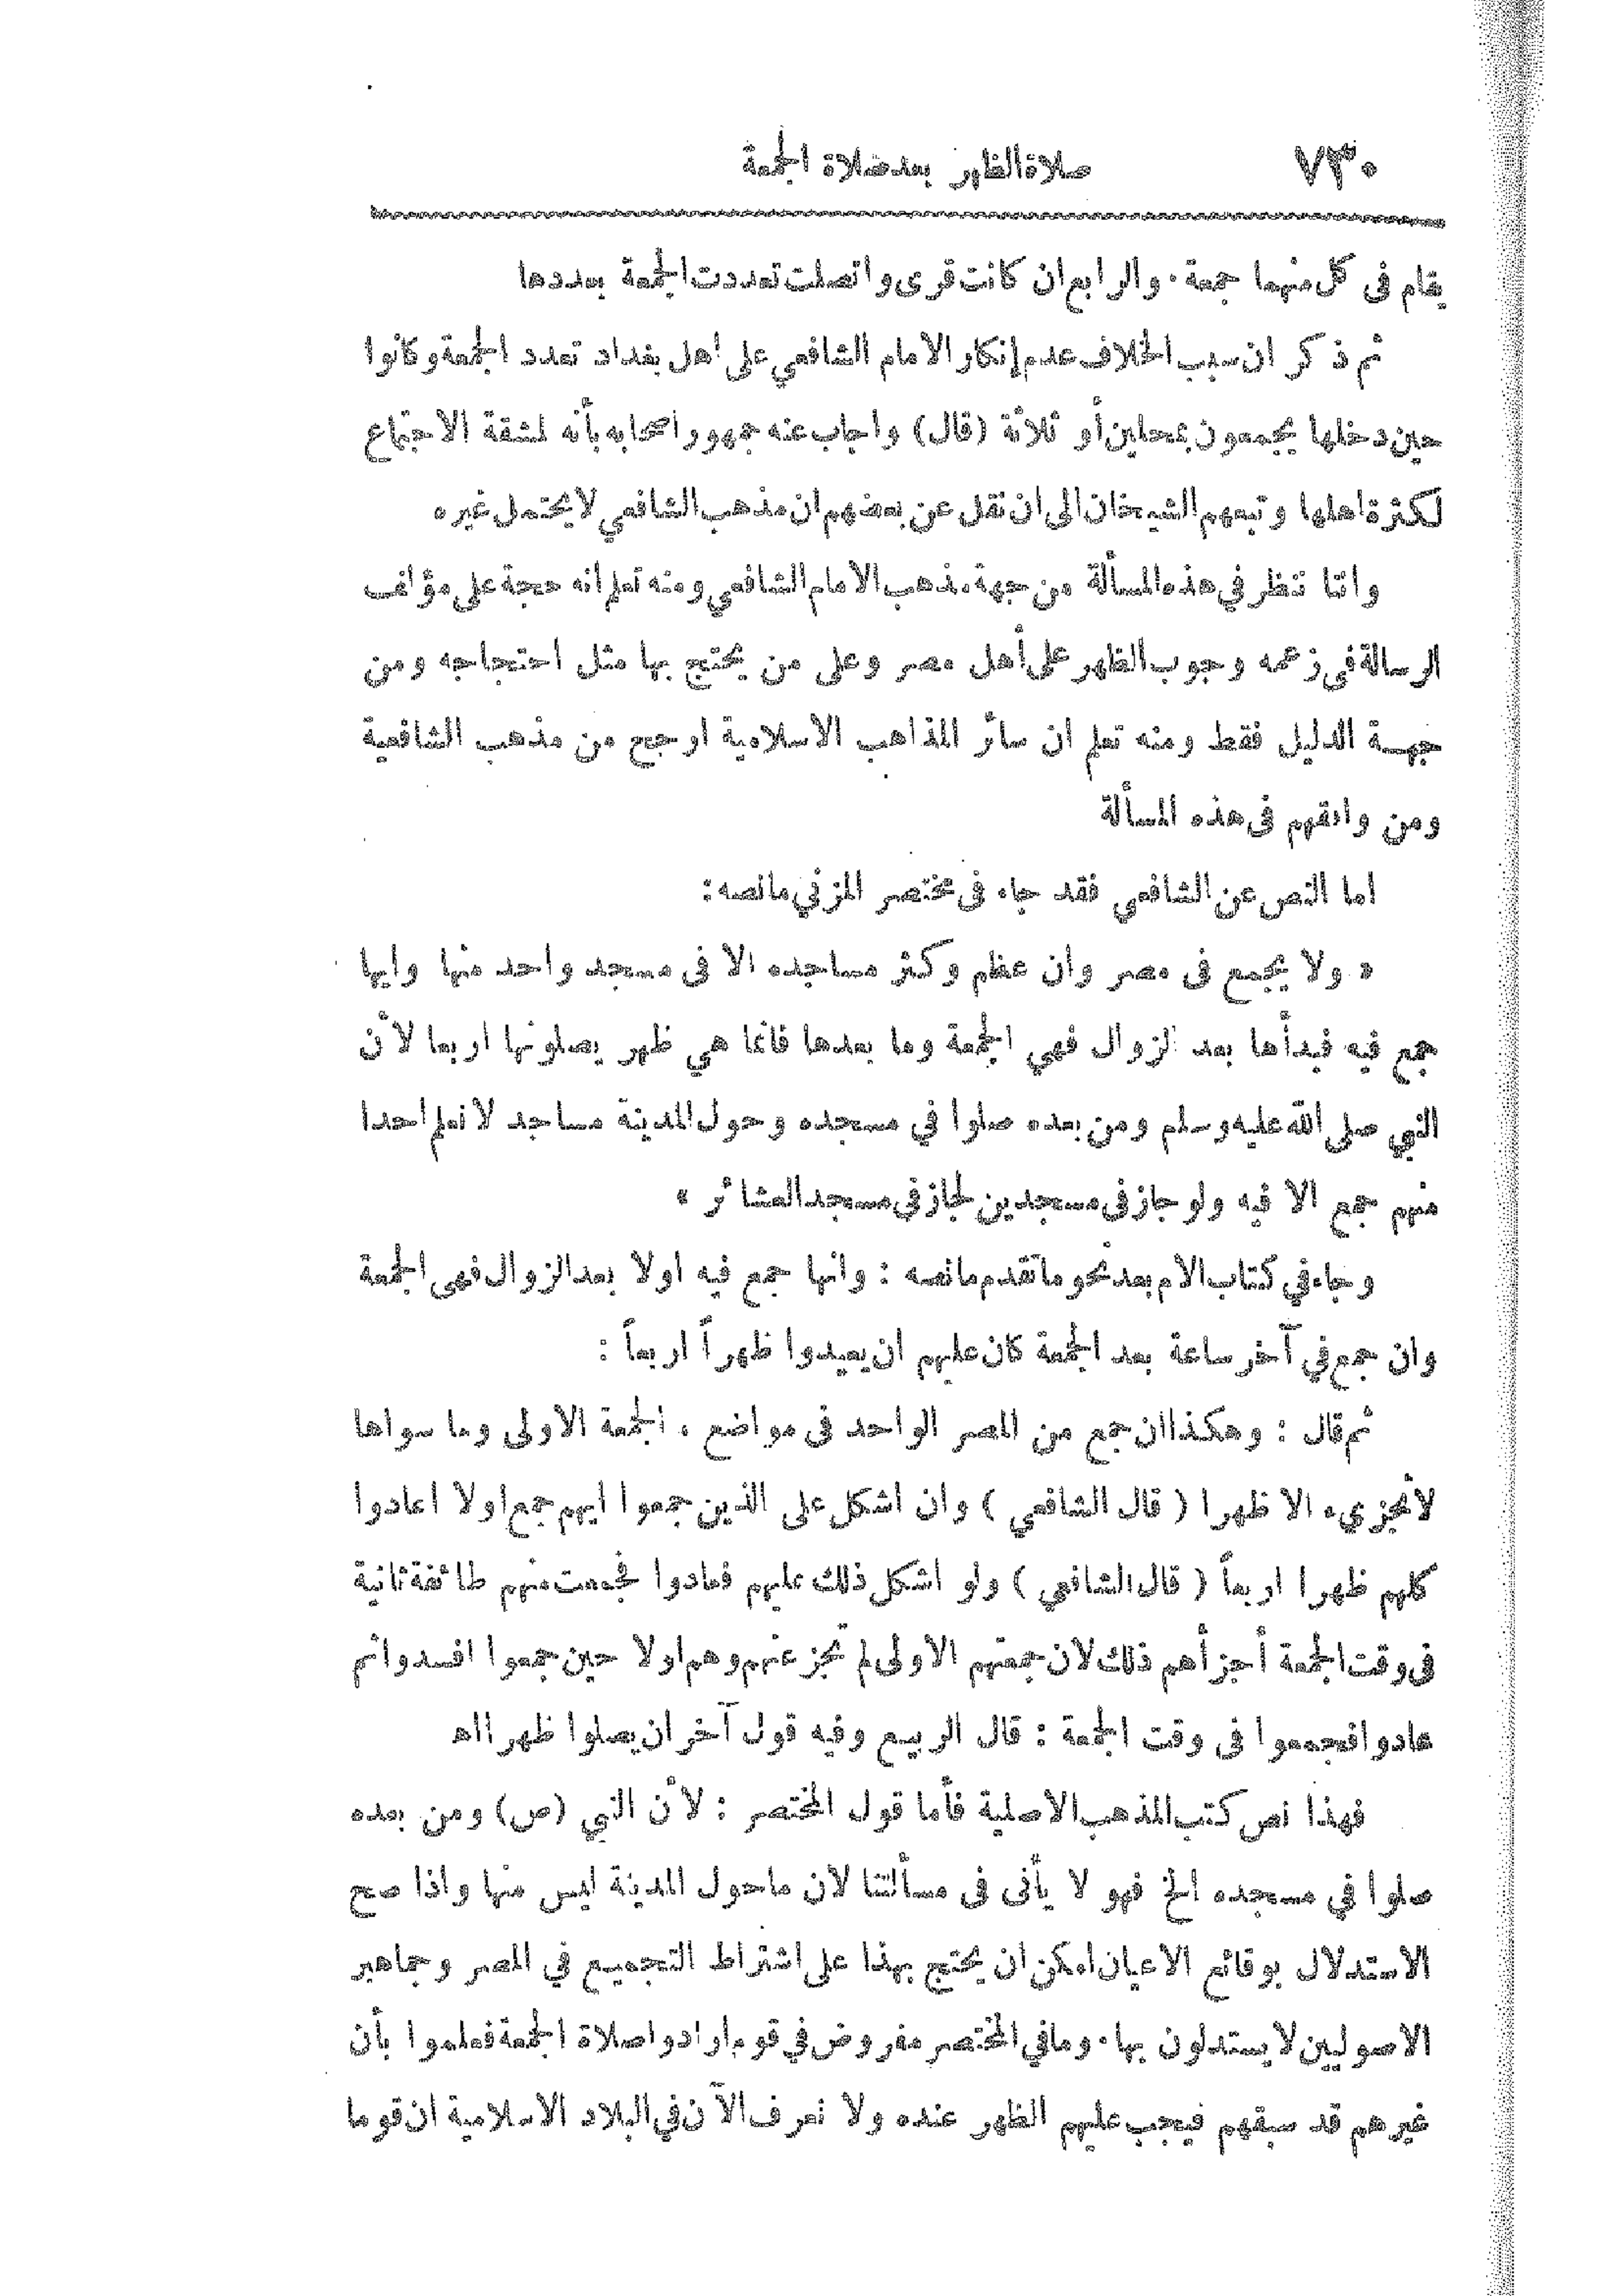 ٧٣٠ صلاة الظهر بعد صلاة الجمعة
يقام في كل منهما جمعة . والرابع ان كانت قرى واتصلت تعددت الجمعة بعددها
ثم ذكر ان سبب الخلاف عدم إنكار الامام الشافعي على اهل بغداد تعدد الجمعة وكانوا
حين دخلها يجمعون بمحلين أو ثلاثة (قال) واجاب عنه جمهور اصحابه بأنه لمشقة الاجتماع
لكثرة اهلها وتبعهم الشيخان الى ان نقل عن بعضهم ان مذهب الشافعي لا يحتمل غيره
واننا ننظر في هذه المسألة من جهة مذهب الامام الشافعي ومنه تعلم انه حجة على مؤلف
الرسالة في زعمه وجوب الظهر على أهل مصر وعلى من يحتج بها مثل احتجاجه ومن
جهة الدليل فقط ومنه تعلم ان سائر المذاهب الاسلامية ارجح من مذهب الشافعية
ومن وافقهم في هذه المسألة
اما النص عن الشافعي فقد جاء في مختصر المزني مانصه :
« ولا يجمع في مصر وان عظم وكثر مساجده الا في مسجد واحد منها وايها
جمع فيه فبدأها بعد الزوال فهي الجمعة وما بعدها فانما هي ظهر يصلونها اربعا لأن
النبي صلى الله عليه وسلم ومن بعده صلوا في مسجده وحول المدينة مساجد لا نعلم احدا
منهم جمع الا فيه ولو جاز في مسجدين لجاز في مسجد العشائر »
وجاء في كتاب الام بعد نحو ماتقدم مانصه : وانها جمع فيه اولا بعد الزوال فهي الجمعة
وان جمع في آخر ساعة بعد الجمعة كان عليهم ان يعيدوا ظهراً اربعاً :
ثم قال : وهكذا ان جمع من المصر الواحد في مواضع ، الجمعة الاولى وما سواها
لا تجزيء الا ظهرا ( قال الشافعي ) وان اشكل على الذين جمعوا ايهم جمع اولا اعادوا
كلهم ظهرا اربعاً ( قال الشافعي ) ولو اشكل ذلك عليهم فعادوا فجمعت منهم طائفة ثانية
في وقت الجمعة أجزأهم ذلك لان جمعتهم الاولى لم تجز عنهم وهم اولا حين جمعوا افسدوا ثم
عادوا فجمعوا في وقت الجمعة : قال الربيع وفيه قول آخر ان يصلوا ظهرا اه
فهذا نص كتب المذهب الاصلية فأما قول المختصر : لأن النبي (ص) ومن بعده
صلوا في مسجده الخ فهو لا يأتى في مسألتنا لان ماحول المدينة ليس منها واذا صح
الاستدلال بوقائع الاعيان امكن ان يحتج بهذا على اشتراط التجميع في المصر وجماهير
الاصوليين لا يستدلون بها . ومافي المختصر مفروض في قوم ارادوا صلاة الجمعة فعلموا بأن
غيرهم قد سبقهم فيجب عليهم الظهر عنده ولا نعرف الآن في البلاد الاسلامية ان قوما